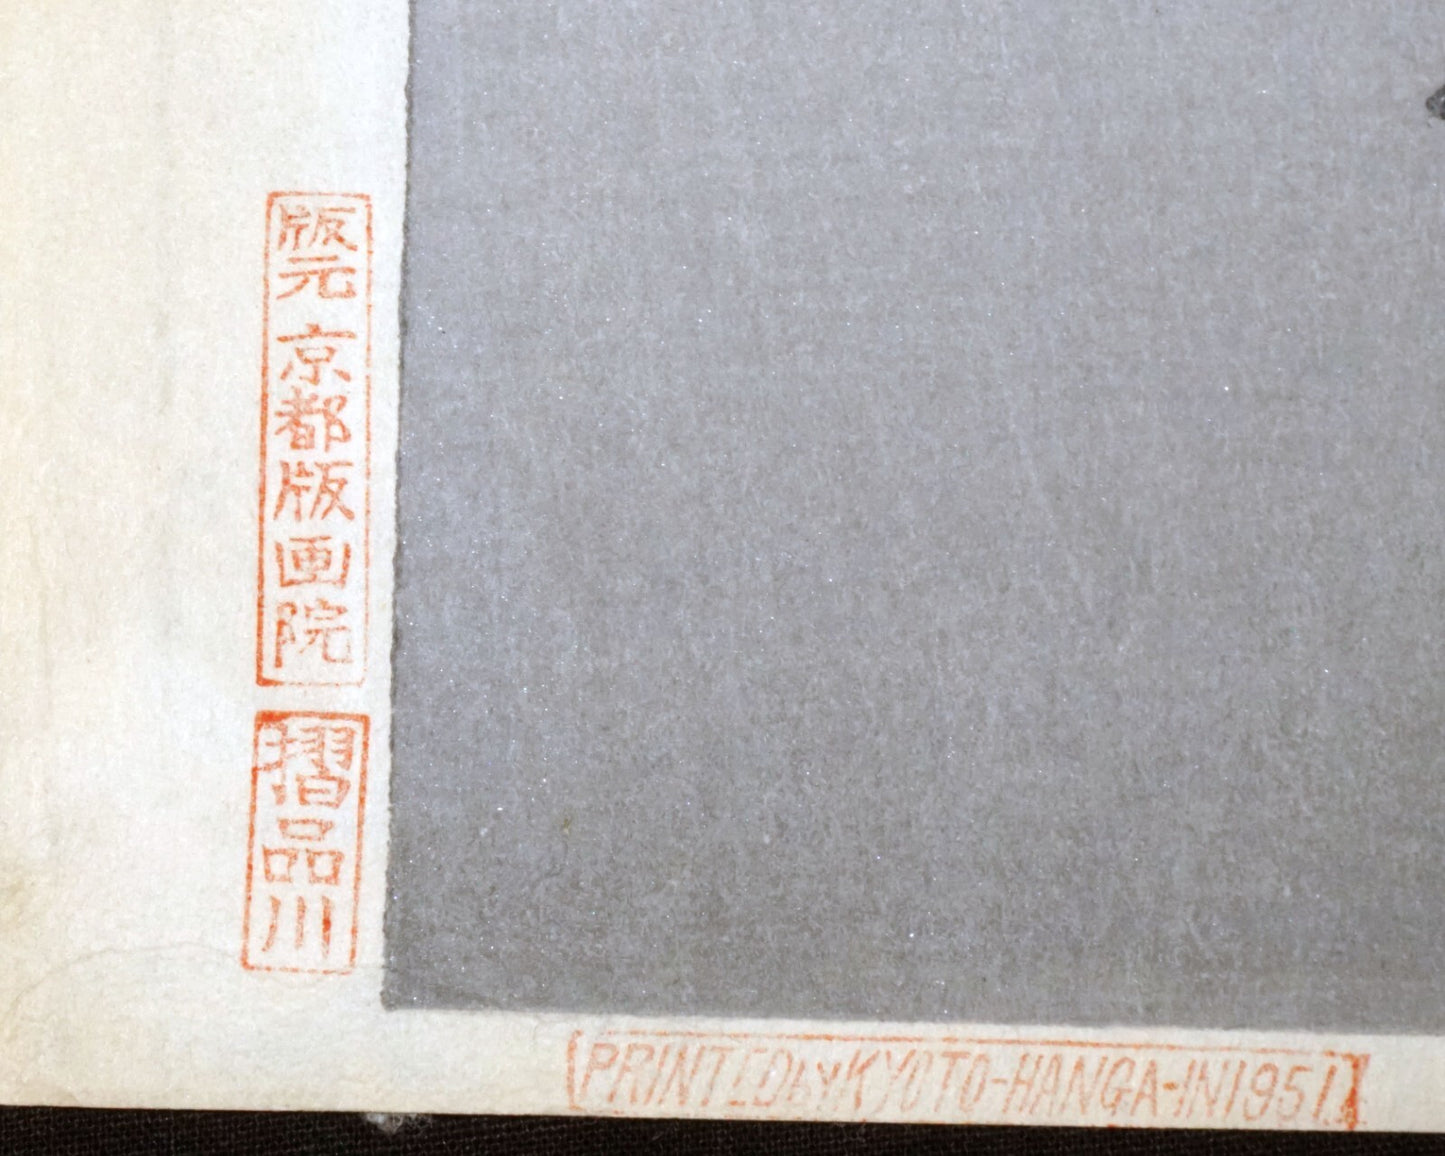 版元 京都版画院
摺品川
PRINTED by KYOTO-HANGA-IN 1951.